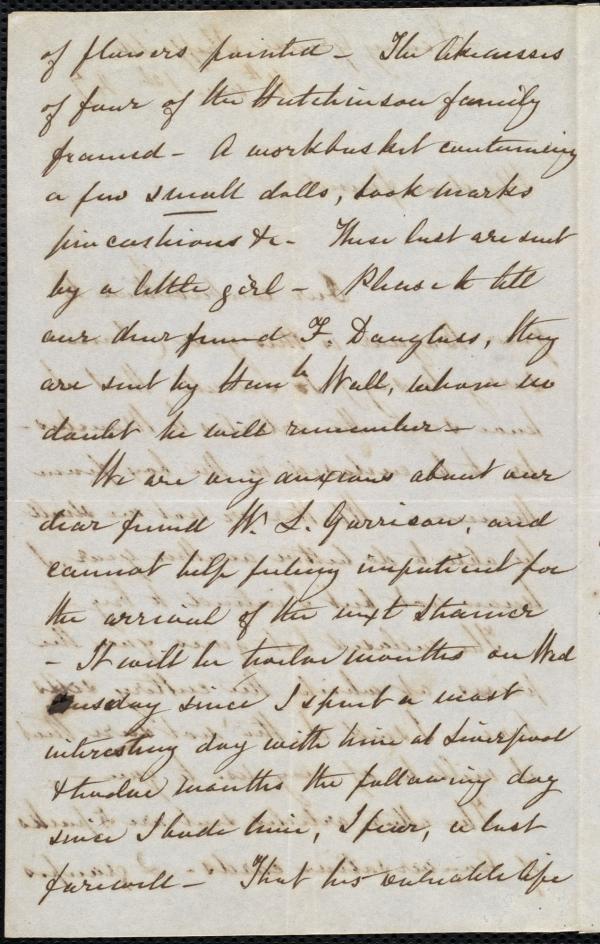 of flowers painted - The likenesses
of four of the Hutchinson family
framed - A workbasket containing
a few small dolls, book marks
pincushions &c - These last are sent
by a little girl - Please to tell
our dear friend F. Douglass, they
are sent by Hanh Wall, whom no
doubt he will remember -
We are very anxious about our
dear friend W. L. Garrison, and
cannot help feeling impatient for
the arrival of the next Steamer
- It will be twelve months on Wed
nesday since I spent a most
interesting day with him at Liverpool
& twelve months the following day
since I bade him, I fear, a last
farewell - That his valuable life